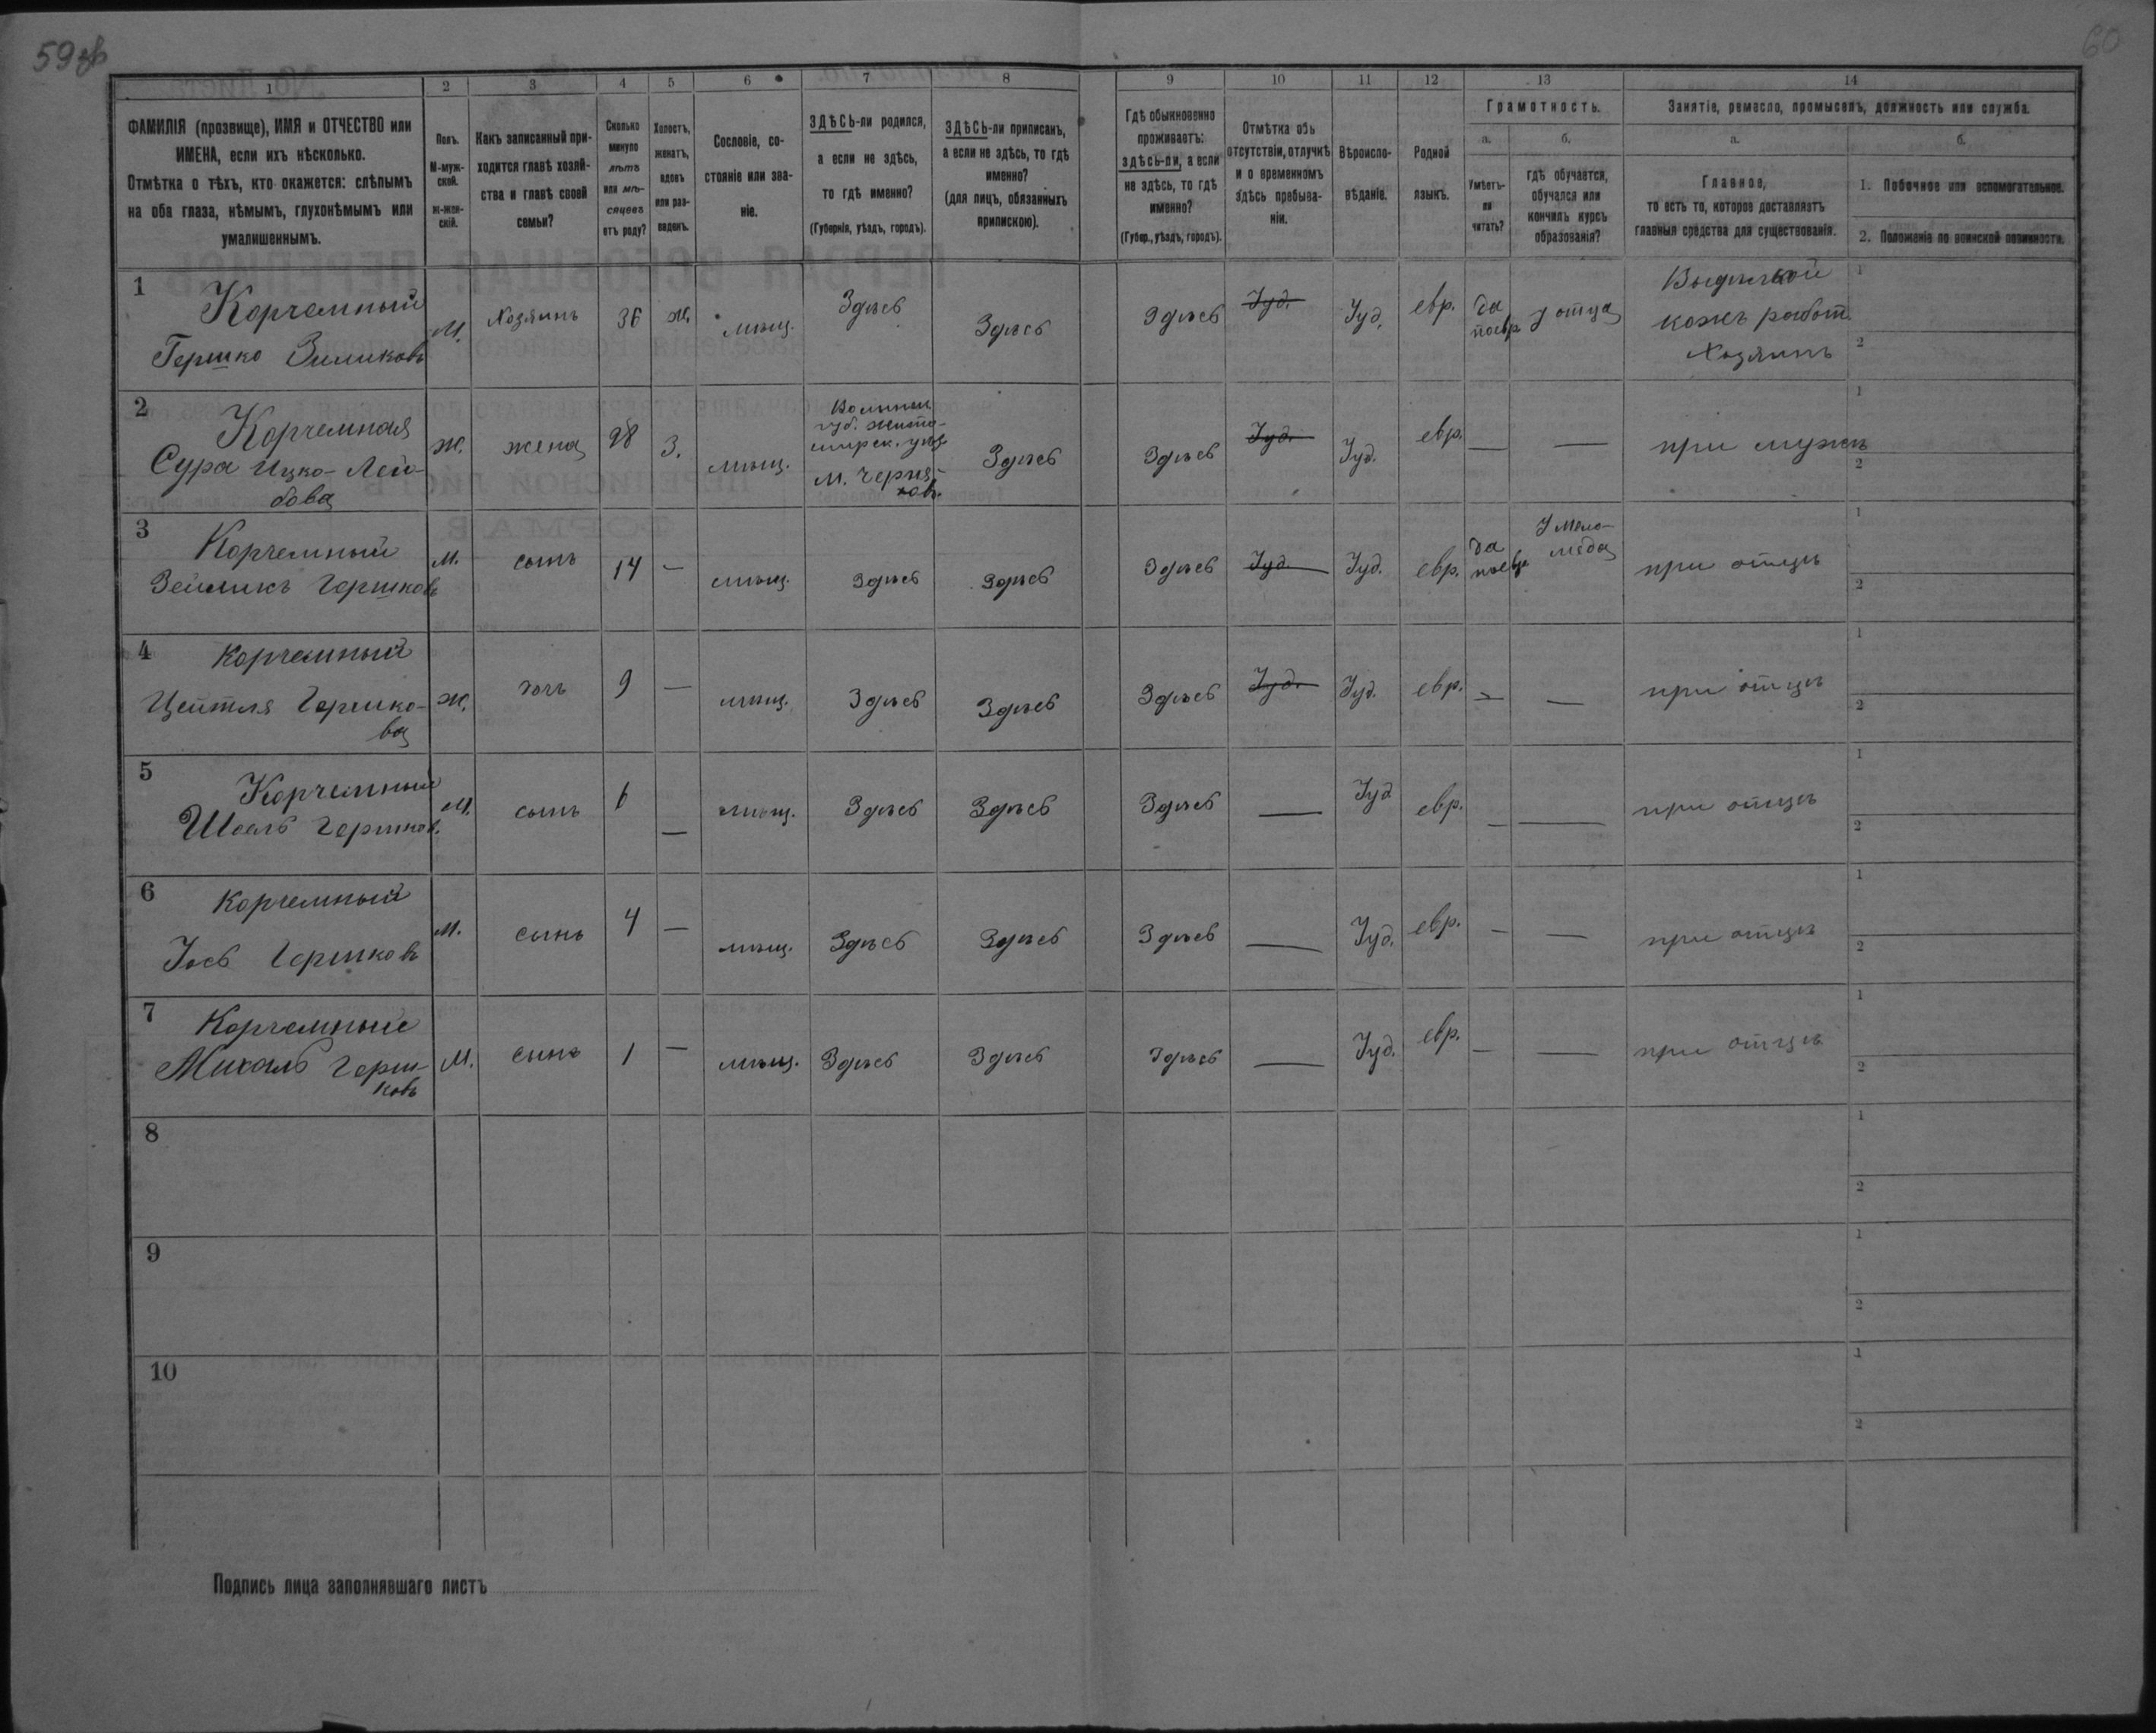 59об
60
1 2 3 4 5 6 7 8 9 10 11 12 13 14
ФАМИЛІЯ (прозвище), ИМЯ и ОТЧЕСТВО или
ИМЕНА, если ихъ нѣсколько.
Отмѣтка о тѣхъ, кто окажется: слѣпымъ
на оба глаза, нѣмымъ, глухонѣмымъ или
умалишеннымъ.
Полъ.
М-муж-
ской.
Ж-жен-
скій.
Какъ записанный при-
ходится главѣ хозяй-
ства и главѣ своей
семьи?
Сколько
минуло
лѣтъ
или мѣ-
сяцевъ
отъ роду?
Холостъ,
женатъ,
вдовъ
или раз-
веденъ.
Сословіе, со-
стояніе или зва-
ніе.
ЗДѢСЬ-ли родился,
а если не здѣсь,
то гдѣ именно?
(Губернія, уѣздъ, городъ).
ЗДѢСЬ-ли приписанъ,
а если не здѣсь, то гдѣ
именно?
(для лицъ, обязанныхъ
припискою).
Гдѣ обыкновенно
проживаетъ:
здѣсь-ли, а если
не здѣсь, то гдѣ
именно?
(Губер., уѣздъ, городъ).
Отмѣтка объ
отсутствіи, отлучкѣ
и о временномъ
здѣсь пребыва-
ніи.
Вѣроиспо-
вѣданіе.
Родной
языкъ.
Грамотность.
а.
Умѣетъ-
ли
читать?
б.
гдѣ обучается,
обучался или
кончилъ курсъ
образованія?
Занятіе, ремесло, промыселъ, должность или служба.
а.
Главное,
то есть то, которое доставляетъ
главныя средства для существованія.
б.
1. Побочное или вспомогательное.
2. Положеніе по воинской повинности.
1
Корчемный
Гершко Зиликовъ
М.
Хозяинъ
36
ж.
мѣщ.
Здѣсь
Здѣсь
Здѣсь
Іуд.
Іуд.
евр.
да
поевр
у отца
Выдѣлкой
кожъ работ.
Хозяинъ
1
2
2
Корчемная
Сура Ицко-Лей-
бова
Ж.
жена
28
З.
мѣщ.
Волынск
губ. Жито-
мирск. уѣз
м. Черня-
ховъ
Здѣсь
Здѣсь
Іуд.
Іуд.
евр.
—
—
при мужѣ
1
2
3
Корчемный
Зейликъ Гершковъ
М.
сынъ
14
—
мѣщ.
Здѣсь
Здѣсь
Здѣсь
Іуд.
Іуд.
евр.
да
поевр
У мела-
меда
при отцѣ
1
2
4
Корчемный
Цейтля Гершко-
ва
Ж.
дочь
9
—
мѣщ.
Здѣсь
Здѣсь
Здѣсь
Іуд.
Іуд.
евр.
—
—
при отцѣ
1
2
5
Корчемный
Шоель Гершков.
М.
сынъ
6
—
мѣщ.
Здѣсь
Здѣсь
Здѣсь
—
Іуд
евр.
—
—
при отцѣ
1
2
6
Корчемный
Іось Гершковъ
М.
сынъ
4
—
мѣщ.
Здѣсь
Здѣсь
Здѣсь
—
Іуд.
евр.
—
—
при отцѣ
1
2
7
Корчемный
Михаль Герш-
ковъ
М.
сынъ
1
—
мѣщ.
Здѣсь
Здѣсь
Здѣсь
—
Іуд.
евр.
—
—
при отцѣ
1
2
8
1
2
9
1
2
10
1
2
Подпись лица заполнявшаго листъ